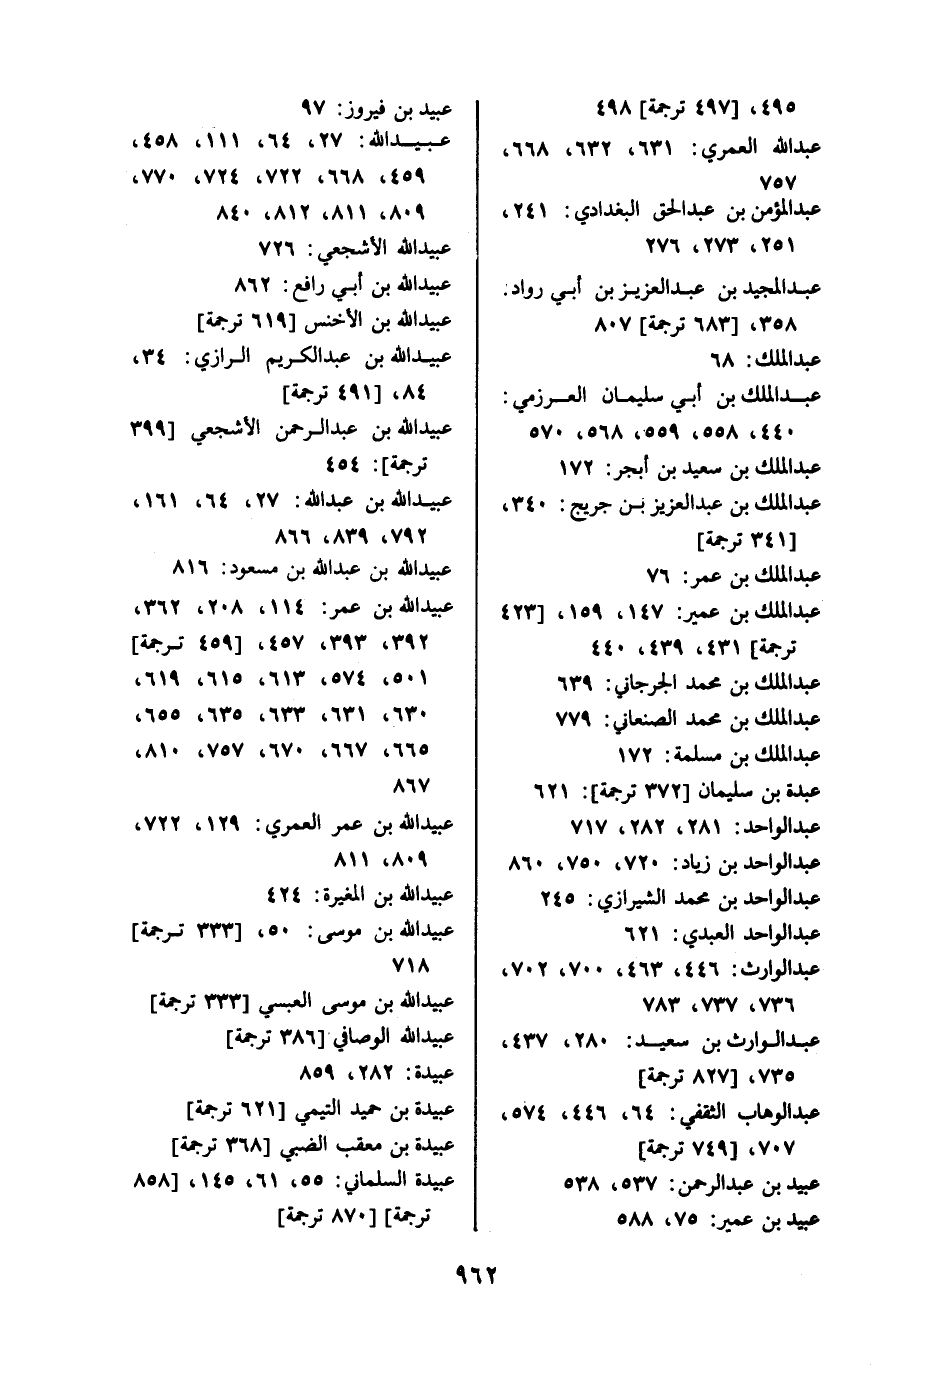 ٤٩٥، [٤٩٧ ترجمة] ٤٩٨
عبدالله العمري: ٦٣١، ٦٣٢، ٦٦٨،
٧٥٧
عبدالمؤمن بن عبدالحق البغدادي: ٢٤١،
٢٥١، ٢٧٣، ٢٧٦
عبدالمجيد بن عبدالعزيز بن أبي رواد:
٣٥٨، [٦٨٣ ترجمة] ٨٠٧
عبدالملك: ٦٨
عبدالملك بن أبي سليمان العرزمي:
٤٤٠، ٥٥٨، ٥٥٩، ٥٦٨، ٥٧٠
عبدالملك بن سعيد بن أبجر: ١٧٢
عبدالملك بن عبدالعزيز بن جريج: ٣٤٠،
[٣٤١ ترجمة]
عبدالملك بن عمر: ٧٦
عبدالملك بن عمير: ١٤٧، ١٥٩، [٤٢٣
ترجمة] ٤٣١، ٤٣٩، ٤٤٠
عبدالملك بن محمد الجرجاني: ٦٣٩
عبدالملك بن محمد الصنعاني: ٧٧٩
عبدالملك بن مسلمة: ١٧٢
عبدة بن سليمان [٣٧٢ ترجمة]: ٦٢١
عبدالواحد: ٢٨١، ٢٨٢، ٧١٧
عبدالواحد بن زياد: ٧٢٠، ٧٥٠، ٨٦٠
عبدالواحد بن محمد الشيرازي: ٢٤٥
عبدالواحد العبدي: ٦٢١
عبدالوارث: ٤٤٦، ٤٦٣، ٧٠٠، ٧٠٢،
٧٣٦، ٧٣٧، ٧٨٣
عبدالوارث بن سعيد: ٢٨٠، ٤٣٧،
٧٣٥، [٨٢٧ ترجمة]
عبدالوهاب الثقفي: ٦٤، ٤٤٦، ٥٧٤،
٧٠٧، [٧٤٩ ترجمة]
عبيد بن عبدالرحمن: ٥٣٧، ٥٣٨
عبيد بن عمير: ٧٥، ٥٨٨
عبيد بن فيروز: ٩٧
عبيدالله: ٢٧، ٦٤، ١١١، ٤٥٨،
٤٥٩، ٦٦٨، ٧٢٢، ٧٢٤، ٧٧٠،
٨٠٩، ٨١١، ٨١٢، ٨٤٠
عبيدالله الأشجعي: ٧٢٦
عبيدالله بن أبي رافع: ٨٦٢
عبيدالله بن الأخنس [٦١٩ ترجمة]
عبيدالله بن عبدالكريم الرازي: ٣٤،
٨٤، [٤٩١ ترجمة]
عبيدالله بن عبدالرحمن الأشجعي [٣٩٩
ترجمة]: ٤٥٤
عبيدالله بن عبدالله: ٢٧، ٦٤، ١٦١،
٧٩٢، ٨٣٩، ٨٦٦
عبيدالله بن عبدالله بن مسعود: ٨١٦
عبيدالله بن عمر: ١١٤، ٢٠٨، ٣٦٢،
٣٩٢، ٣٩٣، ٤٥٧، [٤٥٩ ترجمة]
٥٠١، ٥٧٤، ٦١٣، ٦١٥، ٦١٩،
٦٣٠، ٦٣١، ٦٣٣، ٦٣٥، ٦٥٥،
٦٦٥، ٦٦٧، ٦٧٠، ٧٥٧، ٨١٠،
٨٦٧
عبيدالله بن عمر العمري: ١٢٩، ٧٢٢،
٨٠٩، ٨١١
عبيدالله بن المغيرة: ٤٢٤
عبيدالله بن موسى: ٥٠، [٣٣٣ ترجمة]
٧١٨
عبيدالله بن موسى العبسي [٣٣٣ ترجمة]
عبيدالله الوصافي [٣٨٦ ترجمة]
عبيدة: ٢٨٢، ٨٥٩
عبيدة بن حميد التيمي [٦٢١ ترجمة]
عبيدة بن معقب الضبي [٣٦٨ ترجمة]
عبيدة السلماني: ٥٥، ٦١، ١٤٥، [٨٥٨
ترجمة] [٨٧٠ ترجمة]
٩٦٢